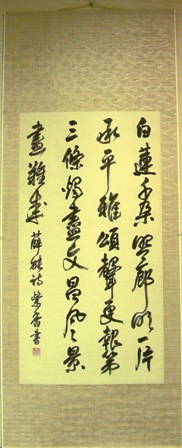 白蓮千朵照廊明一片
承平雅頌聲更報第
三條燭盡文昌風景
畫難成 薛能詩 紫香書